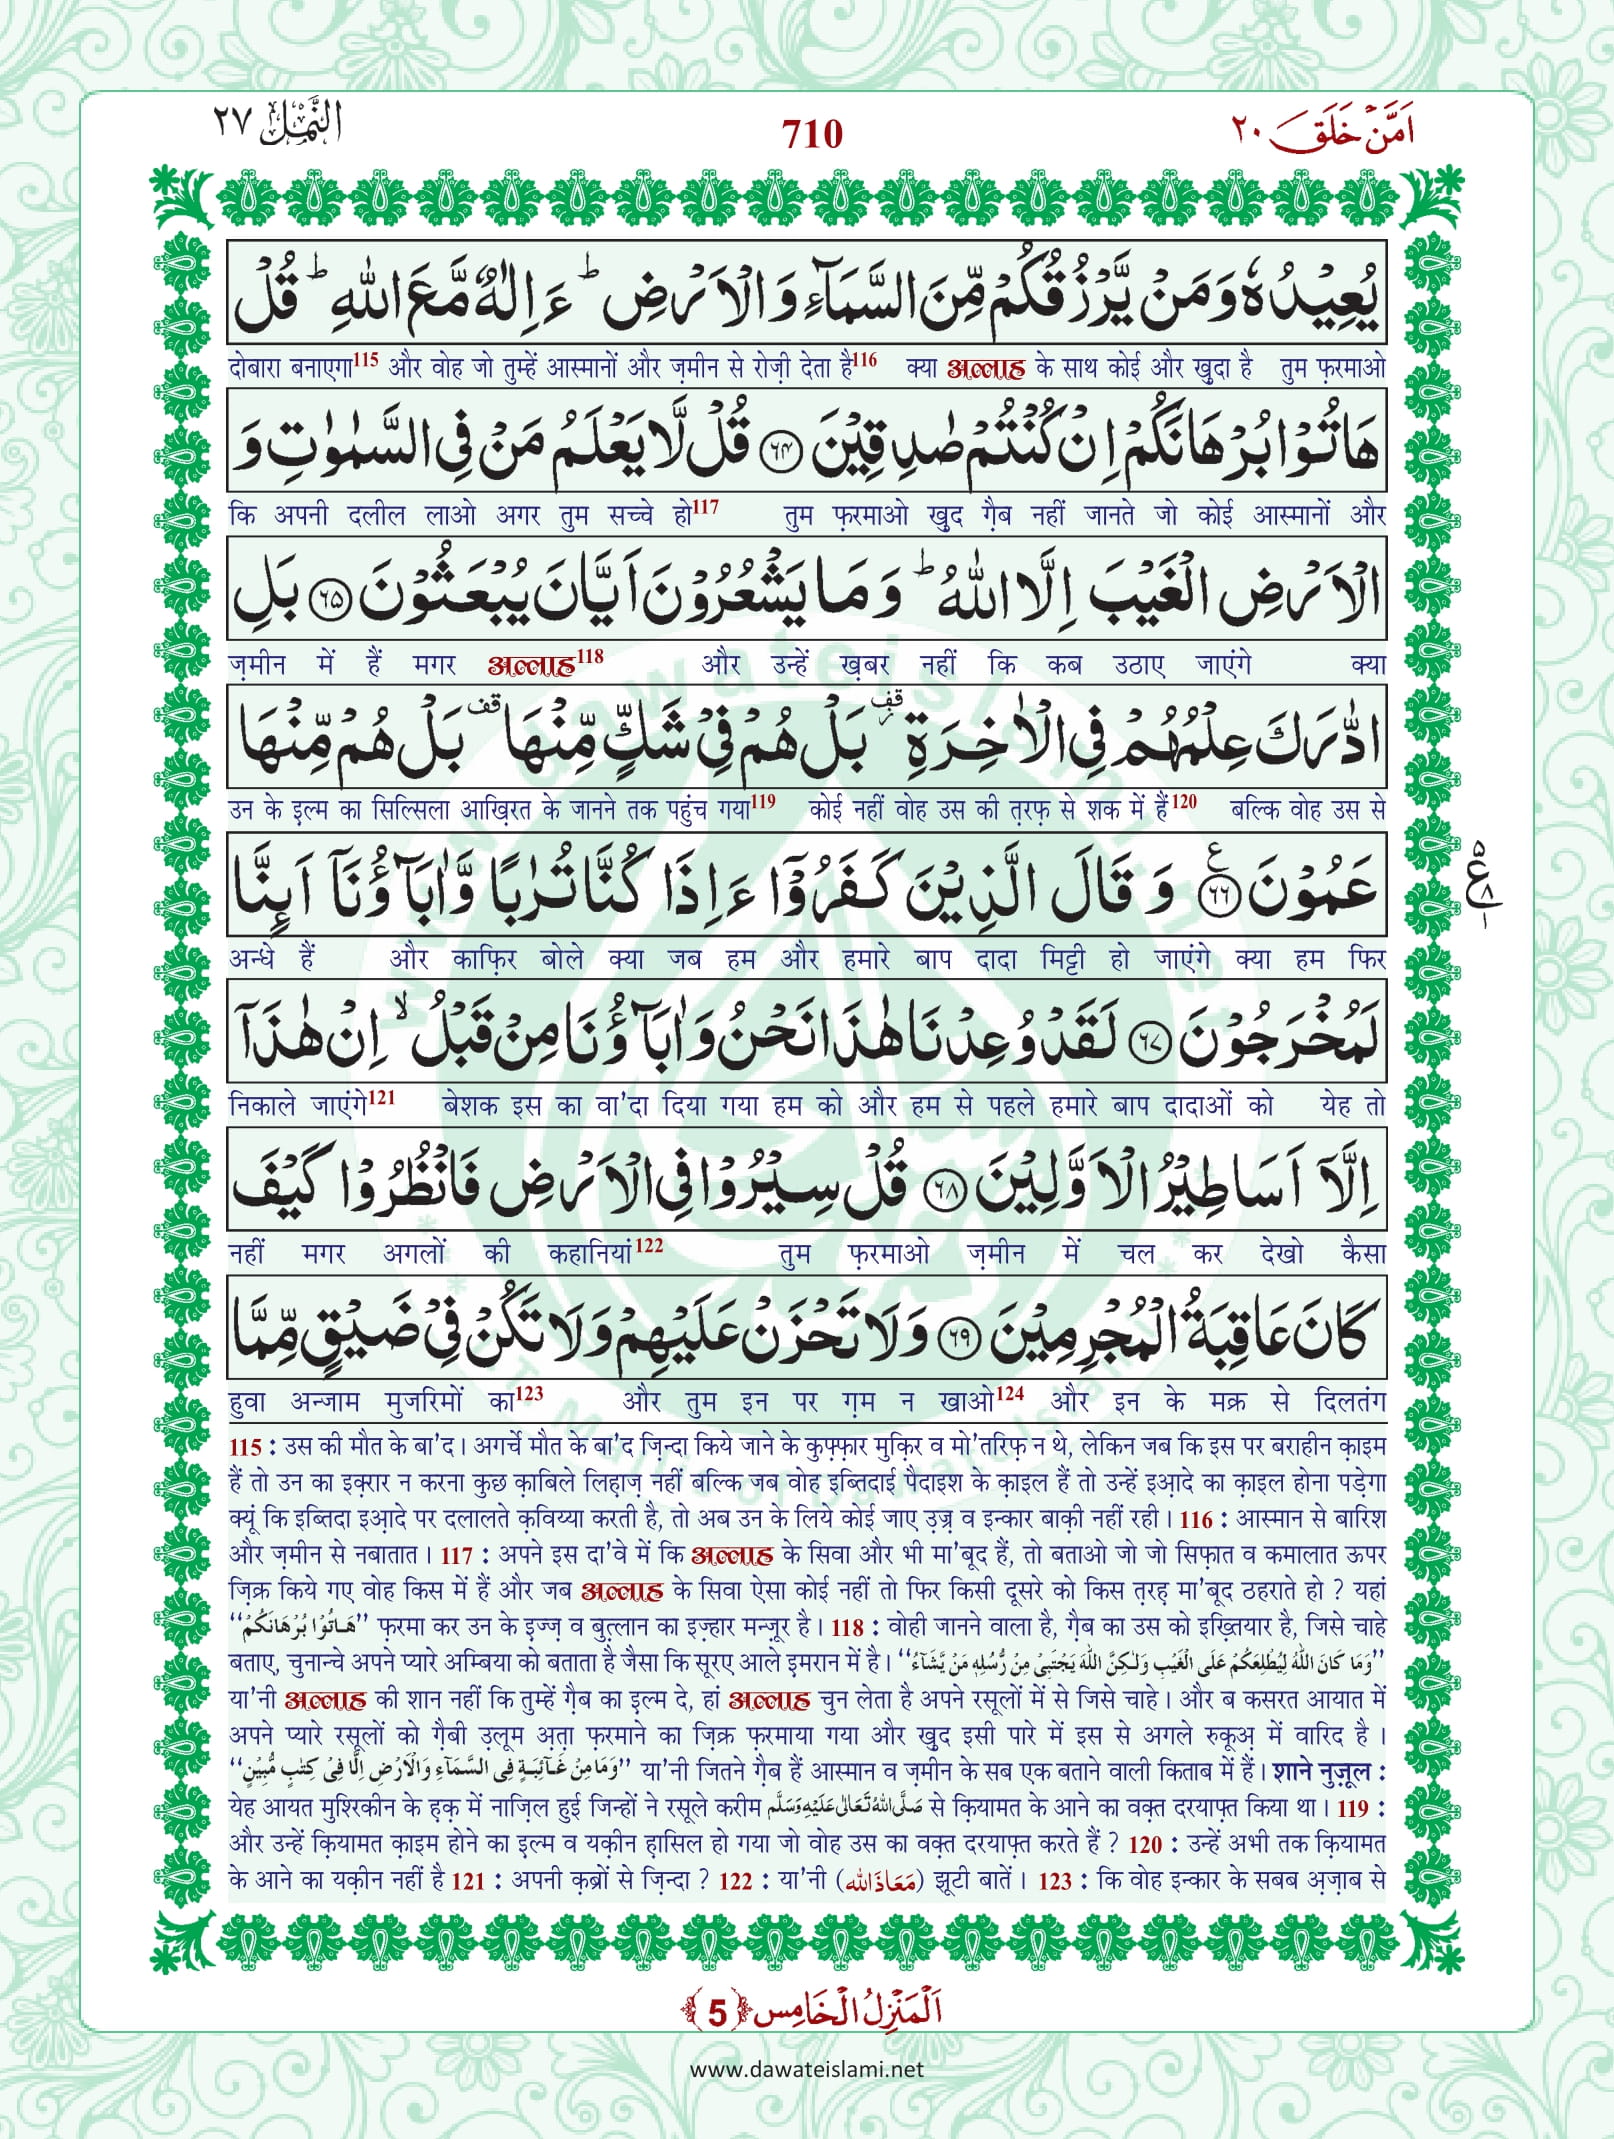 اَمَّنۡ خَلَقَ ٢٠
710
النَّمۡل ٢٧
یُعِیۡدُہٗ وَمَنۡ یَّرۡزُقُکُمۡ مِّنَ السَّمَآءِ وَ الۡاَرۡضِ ؕ ءَ اِلٰہٌ مَّعَ اللّٰہِ ؕ قُلۡ
दोबारा बनाएगा115 और वोह जो तुम्हें आस्मानों और ज़मीन से रोज़ी देता है116 क्या अल्लाह के साथ कोई और ख़ुदा है तुम फ़रमाओ
ہَاتُوۡا بُرۡہَانَکُمۡ اِنۡ کُنۡتُمۡ صٰدِقِیۡنَ ﴿۶۴﴾ قُلۡ لَّا یَعۡلَمُ مَنۡ فِی السَّمٰوٰتِ وَ
कि अपनी दलील लाओ अगर तुम सच्चे हो117 तुम फ़रमाओ ख़ुद ग़ैब नहीं जानते जो कोई आस्मानों और
الۡاَرۡضِ الۡغَیۡبَ اِلَّا اللّٰہُ ؕ وَ مَا یَشۡعُرُوۡنَ اَیَّانَ یُبۡعَثُوۡنَ ﴿۶۵﴾ بَلِ
ज़मीन में हैं मगर अल्लाह118 और उन्हें ख़बर नहीं कि कब उठाए जाएंगे क्या
ادّٰرَکَ عِلۡمُہُمۡ فِی الۡاٰخِرَۃِ ۟ بَلۡ ہُمۡ فِیۡ شَکٍّ مِّنۡہَا ۟ بَلۡ ہُمۡ مِّنۡہَا
उन के इल्म का सिल्सिला आख़िरत के जानने तक पहुंच गया119 कोई नहीं वोह उस की त़रफ़ से शक में हैं120 बल्कि वोह उस से
عَمُوۡنَ ﴿۶۶﴾ وَ قَالَ الَّذِیۡنَ کَفَرُوۡۤا ءَ اِذَا کُنَّا تُرٰبًا وَّ اٰبَآؤُنَاۤ اَئِنَّا
ع ٥ ٨ ١
अन्धे हैं और काफ़िर बोले क्या जब हम और हमारे बाप दादा मिट्टी हो जाएंगे क्या हम फिर
لَمُخۡرَجُوۡنَ ﴿۶۷﴾ لَقَدۡ وُعِدۡنَا ہٰذَا نَحۡنُ وَ اٰبَآؤُنَا مِنۡ قَبۡلُ ۙ اِنۡ ہٰذَاۤ
निकाले जाएंगे121 बेशक इस का वा'दा दिया गया हम को और हम से पहले हमारे बाप दादाओं को येह तो
اِلَّاۤ اَسَاطِیۡرُ الۡاَوَّلِیۡنَ ﴿۶۸﴾ قُلۡ سِیۡرُوۡا فِی الۡاَرۡضِ فَانۡظُرُوۡا کَیۡفَ
नहीं मगर अगलों की कहानियां122 तुम फ़रमाओ ज़मीन में चल कर देखो कैसा
کَانَ عَاقِبَۃُ الۡمُجۡرِمِیۡنَ ﴿۶۹﴾ وَلَا تَحۡزَنۡ عَلَیۡہِمۡ وَلَا تَکُنۡ فِیۡ ضَیۡقٍ مِّمَّا
हुवा अन्जाम मुजरिमों का123 और तुम इन पर ग़म न खाओ124 और इन के मक्र से दिलतंग
115 : उस की मौत के बा'द। अगर्चे मौत के बा'द ज़िन्दा किये जाने के कुफ़्फ़ार मुक़िर व मो'तरिफ़ न थे, लेकिन जब कि इस पर बराहीन क़ाइम
हैं तो उन का इक़्रार न करना कुछ क़ाबिले लिह़ाज़ नहीं बल्कि जब वोह इब्तिदाई पैदाइश के क़ाइल हैं तो उन्हें इआ़दे का क़ाइल होना पड़ेगा
क्यूं कि इब्तिदा इआ़दे पर दलालते क़विय्या करती है, तो अब उन के लिये कोई जाए उ़ज़्र व इन्कार बाक़ी नहीं रही। 116 : आस्मान से बारिश
और ज़मीन से नबातात। 117 : अपने इस दा'वे में कि अल्लाह के सिवा और भी मा'बूद हैं, तो बताओ जो जो सिफ़ात व कमालात ऊपर
ज़िक्र किये गए वोह किस में हैं और जब अल्लाह के सिवा ऐसा कोई नहीं तो फिर किसी दूसरे को किस त़रह़ मा'बूद ठहराते हो ? यहां
“ھَاتُوۡا بُرۡھَانَکُمۡ” फ़रमा कर उन के इ़ज्ज़ व बुत़्लान का इज़्हार मन्ज़ूर है। 118 : वोही जानने वाला है, ग़ैब का उस को इख़्तियार है, जिसे चाहे
बताए, चुनान्चे अपने प्यारे अम्बिया को बताता है जैसा कि सूरए आले इमरान में है। “وَمَا کَانَ اللّٰہُ لِیُطۡلِعَکُمۡ عَلَی الۡغَیۡبِ وَلٰکِنَّ اللّٰہَ یَجۡتَبِیۡ مِنۡ رُّسُلِہٖ مَنۡ یَّشَآءُ”
या'नी अल्लाह की शान नहीं कि तुम्हें ग़ैब का इल्म दे, हां अल्लाह चुन लेता है अपने रसूलों में से जिसे चाहे। और ब कसरत आयात में
अपने प्यारे रसूलों को ग़ैबी उ़लूम अ़त़ा फ़रमाने का ज़िक्र फ़रमाया गया और ख़ुद इसी पारे में इस से अगले रुकूअ़ में वारिद है।
“وَمَا مِنۡ غَآئِبَۃٍ فِی السَّمَآءِ وَالۡاَرۡضِ اِلَّا فِیۡ کِتٰبٍ مُّبِیۡنٍ” या'नी जितने ग़ैब हैं आस्मान व ज़मीन के सब एक बताने वाली किताब में हैं। शाने नुज़ूल :
येह आयत मुश्रिकीन के ह़क़ में नाज़िल हुई जिन्हों ने रसूले करीम صَلَّی اللّٰہُ تَعَالٰی عَلَیۡہِ وَسَلَّم से क़ियामत के आने का वक़्त दरयाफ़्त किया था। 119 :
और उन्हें क़ियामत क़ाइम होने का इल्म व यक़ीन ह़ासिल हो गया जो वोह उस का वक़्त दरयाफ़्त करते हैं ? 120 : उन्हें अभी तक क़ियामत
के आने का यक़ीन नहीं है 121 : अपनी क़ब्रों से ज़िन्दा ? 122 : या'नी (مَعَاذَ اللّٰہ) झूटी बातें। 123 : कि वोह इन्कार के सबब अ़ज़ाब से
اَلۡمَنۡزِلُ الۡخَامِس ﴿5﴾
www.dawateislami.net